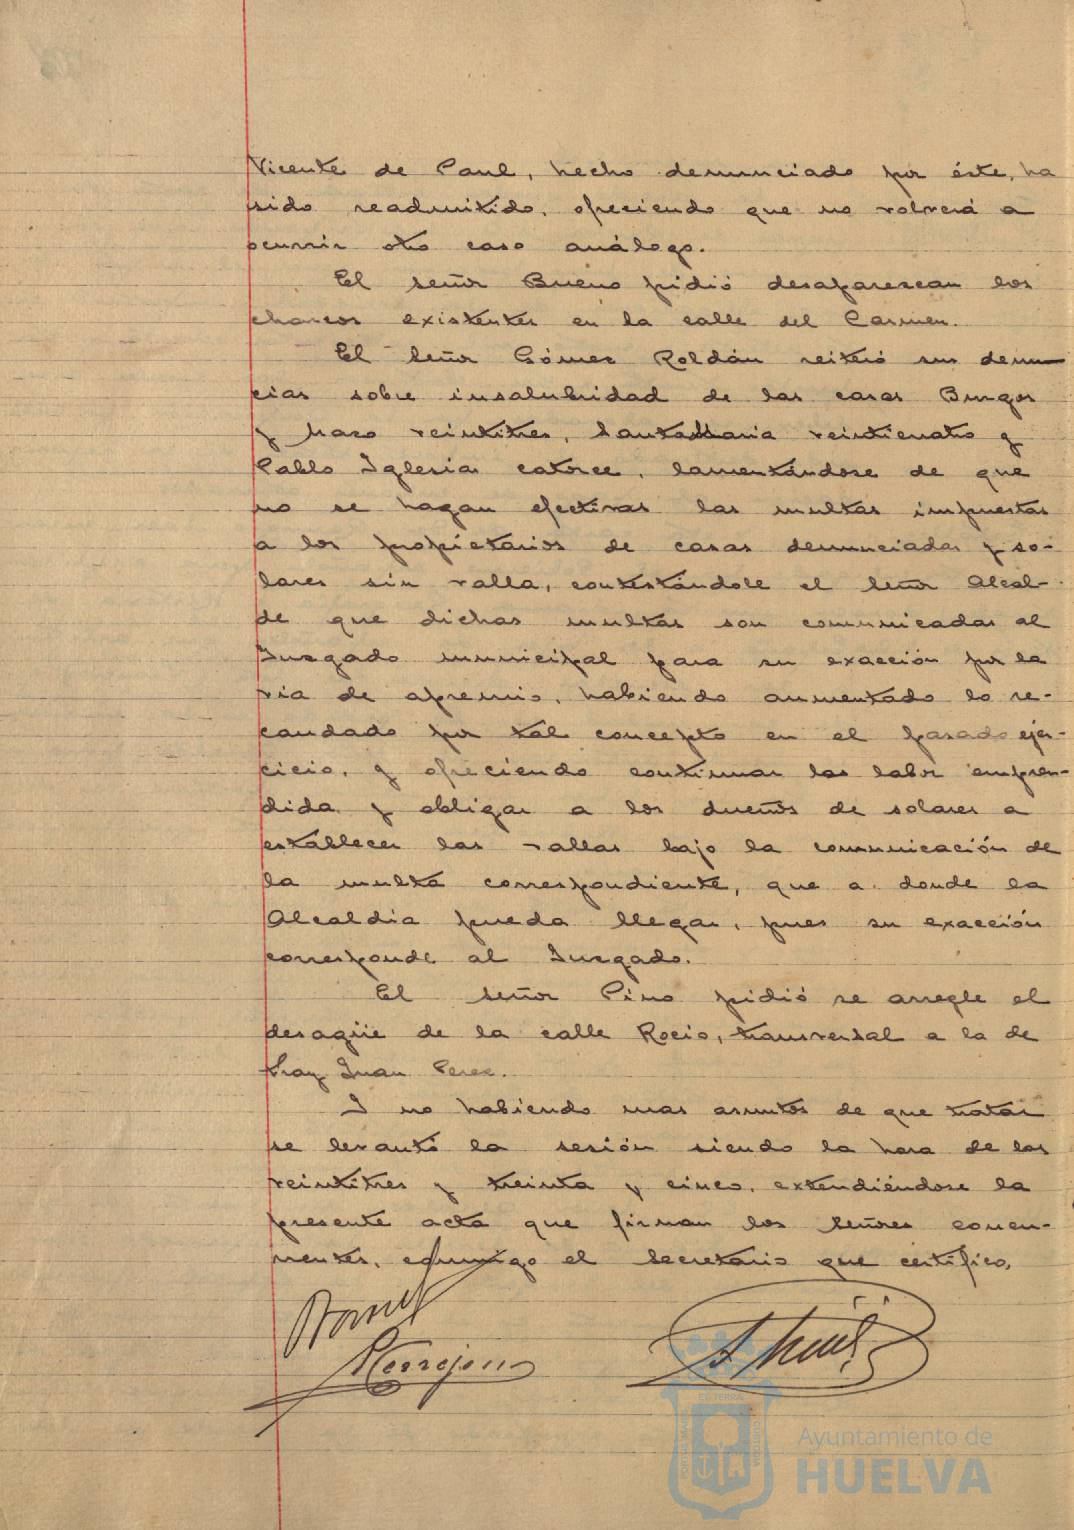 Vicente de Paul, hecho denunciado por éste, ha
sido readmitido, ofreciendo que no volverá a
ocurrir otro caso análogo.
El señor Bueno pidió desaparezcan los
charcos existentes en la calle del Carmen.
El señor Gómez Roldán reiteró sus denun-
cias sobre insalubridad de las casas Burgos
y Mazo veintitres, Santa Maria veinticuatro y
Pablo Iglesias catorce, lamentándose de que
no se hagan efectivas las multas impuestas
a los propietarios de casas denunciadas y so-
lares sin valla, contestándole el señor Alcal-
de que dichas multas son comunicadas al
Juzgado municipal para su exacción por la
via de apremio, habiendo aumentado lo re-
caudado por tal concepto en el pasado ejer-
cicio, y ofreciendo continuar la labor empren-
dida y obligar a los dueños de solares a
establecer las vallas bajo la comunicación de
la multa correspondiente, que a donde la
Alcaldia pueda llegar, pues su exacción
corresponde al Juzgado.
El señor Pino pidió se arregle el
desagüe de la calle Rocio, transversal a la de
Fray Juan Perez.
Y no habiendo mas asuntos de que tratar
se levantó la sesión siendo la hora de las
veintitres y treinta y cinco, extendiéndose la
presente acta que firman los señores concu-
rrentes, conmigo el Secretario que certifico.
Ayuntamiento de
HUELVA